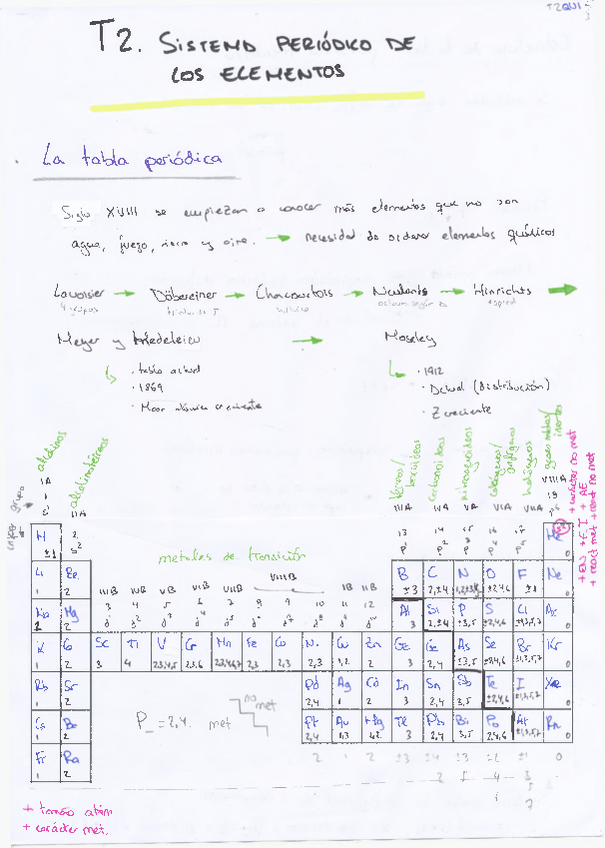 T2QUI
T2. SISTEMA PERIÓDICO DE
LOS ELEMENTOS
La tabla periódica
Siglo XVIII se empiezan a conocer más elementos que no son
agua, fuego, tierra y aire. → necesidad de ordenar elementos químicos
Lavoisier → Döbereiner → Chancourtois → Newlands → Hinrichs →
4 grupos
Meyer y Mendeleiev → Moseley
tabla actual
1869
Masa atómica creciente
1912
Actual (distribución)
Z creciente
alcalinos
alcalinotérreos
térreos/boroideos
carbonoideos
nitrogenoideos
calcógenos/anfígenos
halógenos
gases nobles/inertes
grupo
IA IIA IIIA IVA VA VIA VIIA VIIIA
1 2 13 14 15 16 17 18
metales de transición
IIIB IVB VB VIB VIIB VIIIB IB IIB
3 4 5 6 7 8 9 10 11 12
H
±1 0
Li Be B C N O F Ne
1 2 ±3 2,±4 ±2,4,6 ±1 0
Na Mg Al Si P S Cl Ar
1 2 3 2,±4 ±3,5 ±2,4,6 ±1,3,5,7 0
K Sc Ti V Cr Mn Fe Co Ni Cu Zn Ge As Se Br Kr
1 2 3 4 2,3,4,5 2,3,6 2,3,4,6,7 2,3 2,3 2,3 1,2 2 3 2,4 ±3,5 ±2,4,6 ±1,3,5,7 0
Rb Sr Pd Ag Cd In Sn Sb Te I Xe
1 2 2,4 1 2 3 2,4 3,5 ±2,4,6 ±1,3,5,7 0
Cs Ba Pt Au Hg Tl Pb Bi Po At Rn
1 2 2,4 1,3 1,2 3 2,4 3,5 2,4,6 ±1,3,5,7 0
Fr Ra
1 2
P_ = 2,4.
no met
met
2 1 2 ±3 ±4 ±3 ±2 ±1 0
2 5 4 3
5
7
+ tamaño atóm
+ carácter met.
+ EN + E I + AE
+ carácter no met
+ react met + react no met